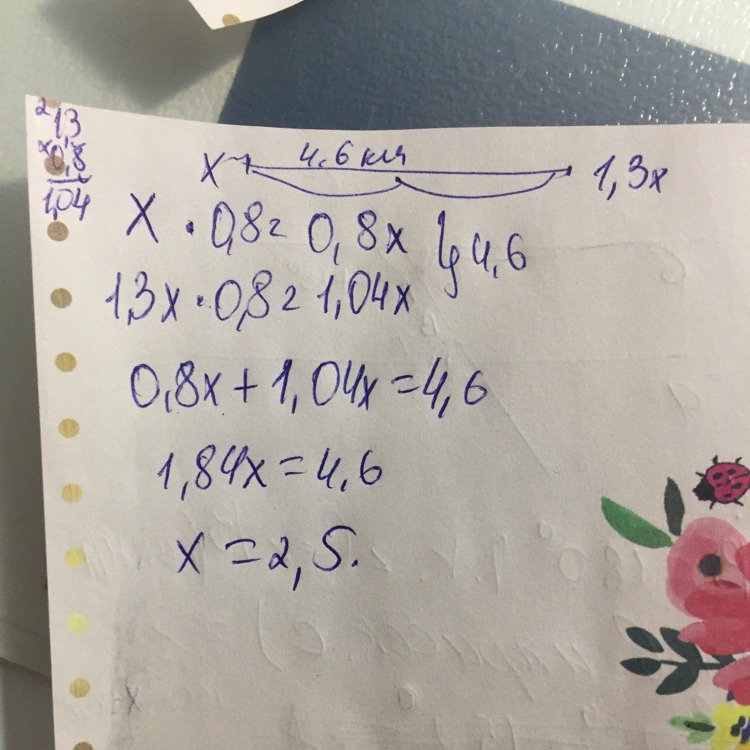 13
×0,8
1,04
x 4,6 км 1,3x
x · 0,8 = 0,8x } 4,6
1,3x · 0,8 = 1,04x
0,8x + 1,04x = 4,6
1,84x = 4,6
x = 2,5.